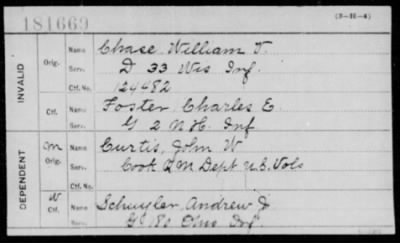 181669
(3-11-4)
INVALID
Orig.
Name Chase William T.
Serv. D 33 Wis Inf.
Ctf. No. 124482
Ctf.
Name Foster Charles E.
Serv. G 2 N.H. Inf
DEPENDENT
M
Orig.
Name Curtis, John W
Serv. Cook Q M Dept U.S. Vols
Ctf. No.
W
Ctf.
Name Schuyler Andrew J
Serv. G 180 Ohio Inf.